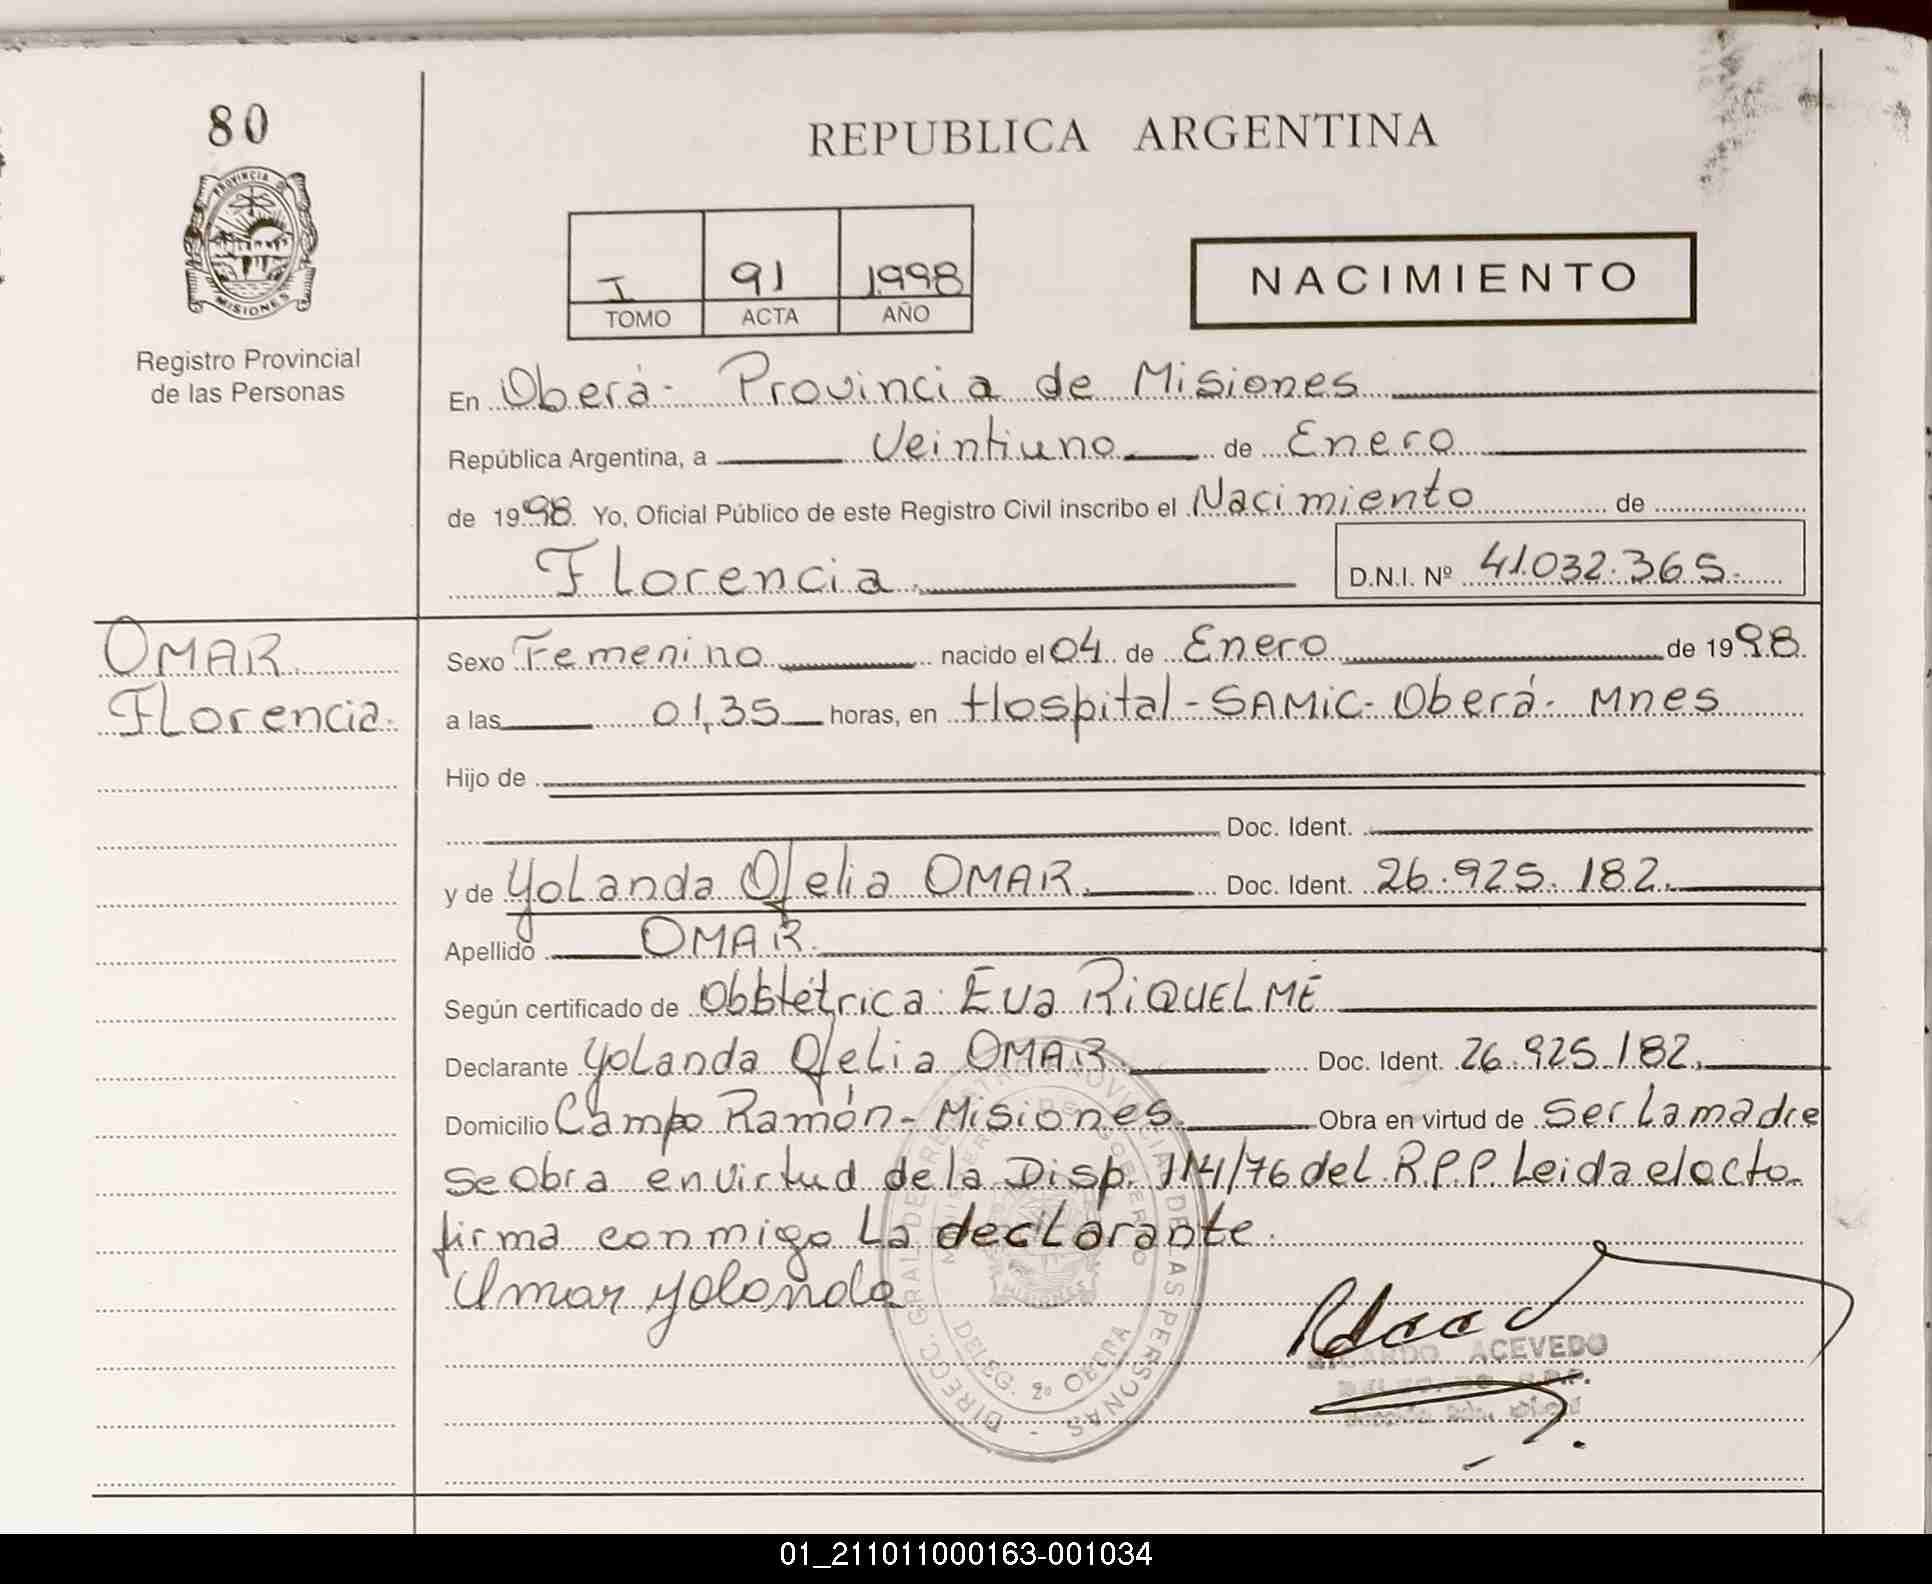 80
PROVINCIA DE
MISIONES
Registro Provincial
de las Personas
REPUBLICA ARGENTINA
I 91 1.998
TOMO ACTA AÑO
NACIMIENTO
En Oberá- Provincia de Misiones
República Argentina, a Veintiuno de Enero
de 1998. Yo, Oficial Público de este Registro Civil inscribo el Nacimiento de
Florencia. D.N.I. Nº 41.032.365.
OMAR
Florencia.
Sexo Femenino nacido el 04 de Enero de 1998.
a las 01,35 horas, en Hospital-SAMIC-Oberá-Mnes
Hijo de
Doc. Ident.
y de Yolanda Ofelia OMAR. Doc. Ident. 26.925.182.
Apellido OMAR.
Según certificado de Obstétrica: Eva RIQUELME
Declarante Yolanda Ofelia OMAR. Doc. Ident. 26.925.182.
Domicilio Campo Ramón-Misiones. Obra en virtud de ser la madre
se obra en virtud de la Disp. 114/76 del R.P.P. Leida el acto
firma conmigo la declarante.
Omar Yolanda
DIRECC. GRAL DE REGISTRO PROVINCIAL DE LAS PERSONAS -
MINISTERIO DE GOBIERNO
DELEG. 2º OBERA
RICARDO ACEVEDO
01_211011000163-001034